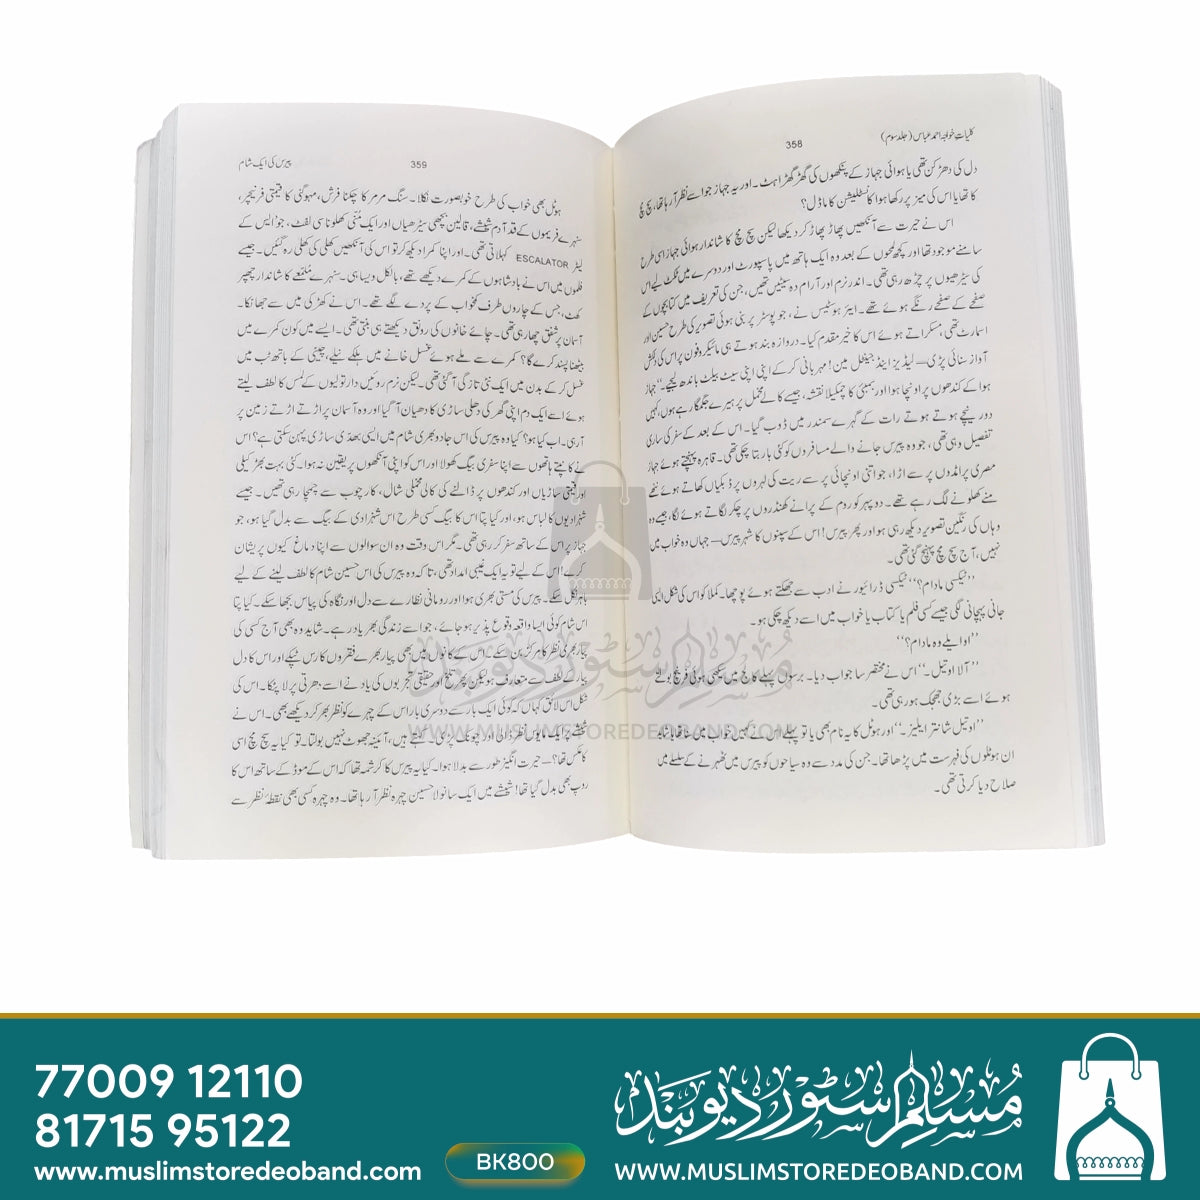 کلیات خواجہ احمد عباس (جلد سوم)
358
دل کی دھڑکن تھی یا ہوائی جہاز کے پنکھوں کی گھڑگھڑاہٹ۔ اور یہ جہاز جو اسے نظر آرہا تھا، سچ مچ
کا تھا یا اس کی میز پر رکھا ہوا کانسٹلیشن کا ماڈل؟
اس نے حیرت سے آنکھیں پھاڑ پھاڑ کر دیکھا لیکن سچ مچ کا شاندار ہوائی جہاز اسی طرح
سامنے موجود تھا اور کچھ لمحوں کے بعد وہ ایک ہاتھ میں پاسپورٹ اور دوسرے میں ٹکٹ لیے اس
کی سیڑھیوں پر چڑھ رہی تھی۔ اندر نرم اور آرام دہ سیٹیں تھیں، جن کی تعریف میں کتابچوں کے
صفحے کے صفحے رنگے ہوئے تھے۔ ایئر ہوسٹس نے، جو پوسٹر پر بنی ہوئی تصویر کی طرح حسین اور
اسمارٹ تھی، مسکراتے ہوئے اس کا خیر مقدم کیا۔ دروازہ بند ہوتے ہی مائیکروفون پر اس کی دلکش
آواز سنائی پڑی— لیڈیز اینڈ جینٹل مین! مہربانی کرکے اپنی اپنی سیٹ بیلٹ باندھ لیجیے۔'' جہاز
ہوا کے کندھوں پر اونچا ہوا اور بمبئی کا چمکیلا نقشہ، جیسے کالے مخمل پر ہیرے جگمگا رہے ہوں، کہیں
دور نیچے ہوتے ہوتے رات کے گہرے سمندر میں ڈوب گیا۔ اس کے بعد کے سفر کی ساری
تفصیل وہی تھی، جو وہ پیرس جانے والے مسافروں کو کئی بار بتا چکی تھی۔ قاہرہ پہنچتے ہوئے جہاز
مصری پرامڈوں پر سے اڑا، جو اتنی اونچائی پر سے ریت کی لہروں پر ڈبکیاں کھاتے ہوئے ننھے
منے کھلونے لگ رہے تھے۔ دوپہر کو روم کے پرانے کھنڈروں پر چکر لگاتے ہوئے لگا، جیسے وہ
وہاں کی رنگین تصویر دیکھ رہی ہو اور پھر پیرس! اس کے سپنوں کا شہر پیرس— جہاں وہ خواب میں
نہیں، آج سچ مچ پہنچ گئی تھی۔
''ٹیکسی مادام؟'' ٹیکسی ڈرائیور نے ادب سے جھکتے ہوئے پوچھا۔ کملا کو اس کی شکل ایسی
جانی پہچانی لگی جیسے کسی فلم یا کتاب یا خواب میں اسے دیکھ چکی ہو۔
''اوا یلے وو مادام؟''
''آلا اوتیل۔'' اس نے مختصر سا جواب دیا۔ برسوں پہلے کالج میں سیکھی ہوئی فرنچ بولتے
ہوئے اسے بڑی جھجک ہو رہی تھی۔
''اوتیل شانتر ایلیز۔'' اور ہوٹل کا یہ نام بھی یا تو پہلے اس نے کہیں خواب میں سنا تھا یا شاید
ان ہوٹلوں کی فہرست میں پڑھا تھا۔ جن کی مدد سے وہ سیاحوں کو پیرس میں ٹھہرنے کے سلسلے میں
صلاح دیا کرتی تھی۔
359
پیرس کی ایک شام
ہوٹل بھی خواب کی طرح خوبصورت نکلا۔ سنگ مرمر کا چکنا فرش، مہوگنی کا قیمتی فرنیچر،
سنہرے فریموں کے قد آدم شیشے، قالین بچھی سیڑھیاں اور ایک مُنّی کھلونا سی لفٹ، جو 'ایس کے
لیٹر ESCALATOR کہلاتی تھی۔ اور اپنا کمرا دیکھ کر تو اس کی آنکھیں کھلی کی کھلی رہ گئیں۔ جیسے
فلموں میں اس نے بادشاہوں کے کمرے دیکھے تھے، بالکل ویسا ہی۔ سنہرے ملمّعے کا شاندار چھپر
کھٹ، جس کے چاروں طرف کمخواب کے پردے لگے تھے۔ اس نے کھڑکی میں سے جھانکا۔
آسمان پر شفق چھا رہی تھی۔ چائے خانوں کی رونق دیکھتے ہی بنتی تھی۔ ایسے میں کون کمرے میں
بیٹھنا پسند کرے گا؟ کمرے سے ملے ہوئے غسل خانے میں ہلکے نیلے، چینی کے باتھ ٹب میں
غسل کرکے بدن میں ایک نئی تازگی آگئی تھی۔ لیکن نرم روئیں دار تولیوں کے لمس کا لطف لیتے
ہوئے اسے ایک دم اپنی گھر کی دھلی ساڑی کا دھیان آگیا اور وہ آسمان پر اڑتے اڑتے زمین پر
آرہی۔ اب کیا ہو؟ کیا وہ پیرس کی اس جادو بھری شام میں ایسی بھدی ساڑی پہن سکتی ہے؟ اس
نے کانپتے ہاتھوں سے اپنا سفری بیگ کھولا اور اس کو اپنی آنکھوں پر یقین نہ ہوا۔ کئی بہت بھڑکیلی
اور قیمتی ساڑیاں اور کندھوں پر ڈالنے کی کالی مخملی شال، کارچوب سے چمچا رہی تھیں۔ جیسے
شہزادیوں کا لباس ہو، اور کیا پتا اس کا بیگ کسی طرح اس شہزادی کے بیگ سے بدل گیا ہو، جو
جہاز پر اس کے ساتھ سفر کر رہی تھی۔ مگر اس وقت وہ ان سوالوں سے اپنا دماغ کیوں پریشان
کرے اس کے لیے تو یہ ایک غیبی امداد تھی، تاکہ وہ پیرس کی اس حسین شام کا لطف لینے کے لیے
باہر نکل سکے۔ پیرس کی مستی بھری ہوا اور رومانی نظارے سے دل اور نگاہ کی پیاس بجھا سکے۔ کیا پتا
اس شام کوئی ایسا واقعہ وقوع پذیر ہو جائے، جو اسے زندگی بھر یاد رہے۔ شاید وہ بھی آج کسی کی
پیار بھری نظر کا مرکز بن سکے۔ اس کے کانوں میں بھی پیار بھرے فقروں کا رس ٹپکے اور اس کا دل
پیار کے لطف سے متعارف ہو لیکن پھر تلخ اور حقیقی تجربوں کی یاد نے اسے دھرتی پر لا پٹکا۔ اس کی
شکل اس لائق کہاں کہ کوئی ایک بار سے دوسری بار اس کے چہرے کو نظر بھر کر دیکھے بھی۔ اس نے
شیشے پر ایک مایوس نظر ڈالی اور چونک پڑی۔ کہتے ہیں، آئینہ جھوٹ نہیں بولتا۔ تو کیا یہ سچ مچ اسی
کا عکس تھا؟ حیرت انگیز طور سے بدلا ہوا۔ کیا یہ پیرس کا کرشمہ تھا کہ اس کے موڈ کے ساتھ اس کا
روپ بھی بدل گیا تھا! شیشے میں ایک سانولا حسین چہرہ نظر آرہا تھا۔ وہ چہرہ کسی بھی نقطۂ نظر سے
مسلم سٹور دیوبند
WWW.MUSLIMSTOREDEOBAND.COM
77009 12110
81715 95122
www.muslimstoredeoband.com
BK800
مسلم سٹور دیوبند
WWW.MUSLIMSTOREDEOBAND.COM